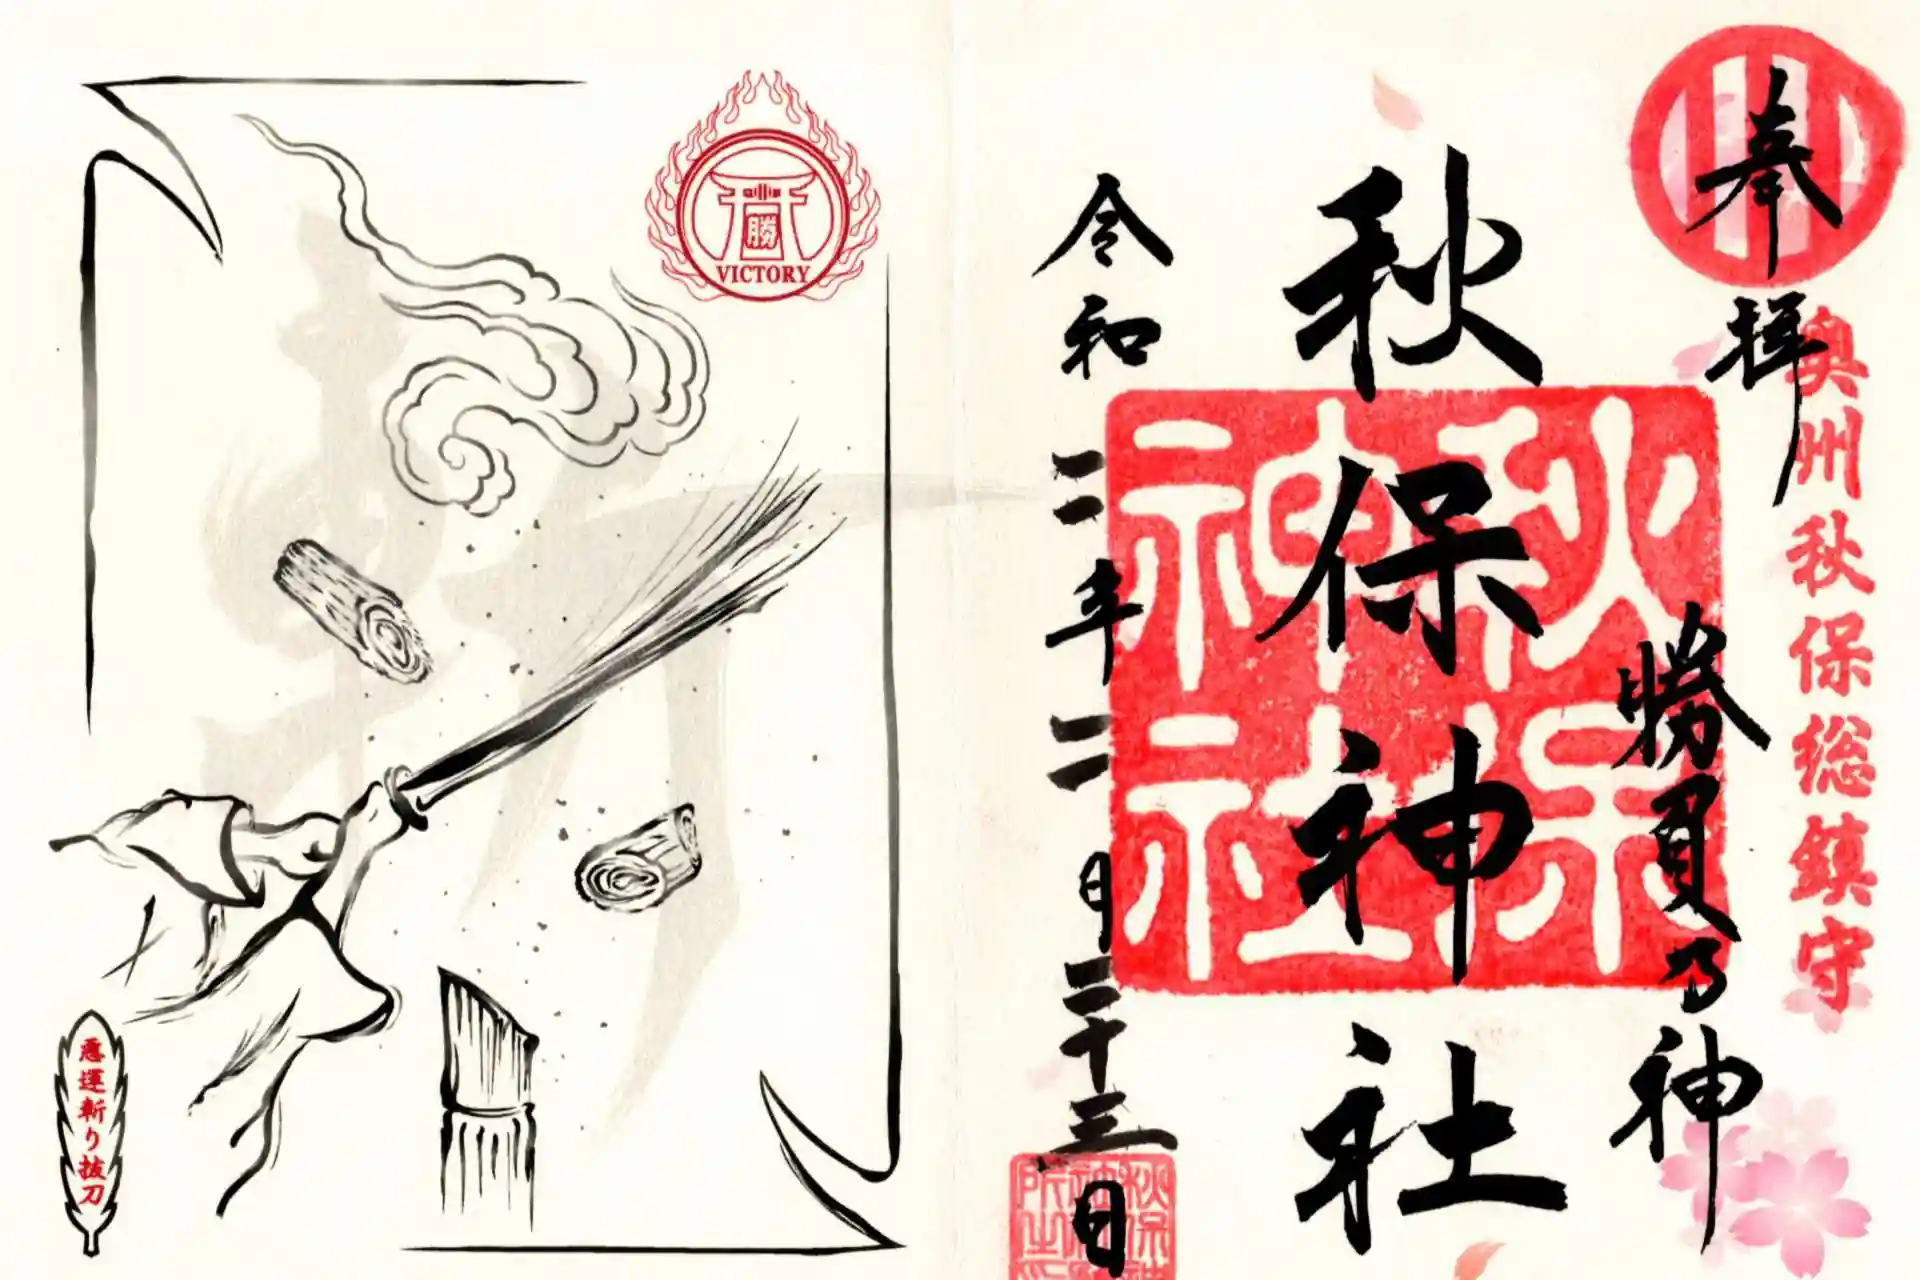 奉拝
奥州秋保総鎮守
勝負乃神
秋保神社
秋保神社
令和二年二月二十三日
勝
VICTORY
悪運斬り抜刀